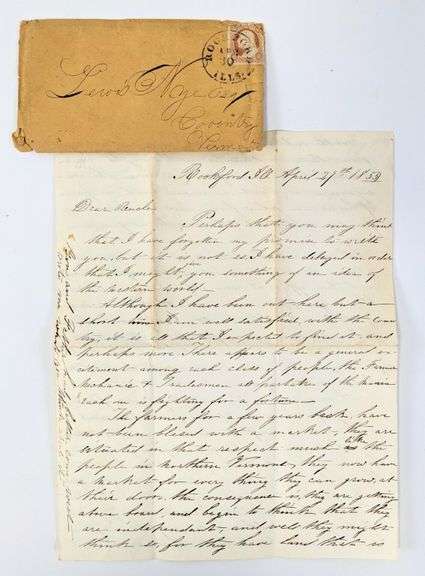 ROCKFORD
APR
30
ILLS.
Lewis Nye Esq
Coventry
Verm
Rockford Ill April 27th 1853
Dear Uncle
Perhaps that you may think
that I have forgotten my promise to write
you, but it is not so I have delayed in order
that I might give you something of an idea of
the western world.
Although I have been out here but a
short time I am well satisfied with the coun
try, it is all that I expected to find it and
perhaps more There appears to be a general ex
citement among each class of people, the Farmer
Mechanic & Tradesman all partake of the
each one is fighting for a fortune.
The farmers for a few years back have
not been blessed with a market, they are
situated in that respect much like the
people in northern Vermont, they now have
a market for every thing they can grow, at
their doors, the consequence is they are getting
above board, and begin to think that they
are independent, and well they might
think so, for they have land that is